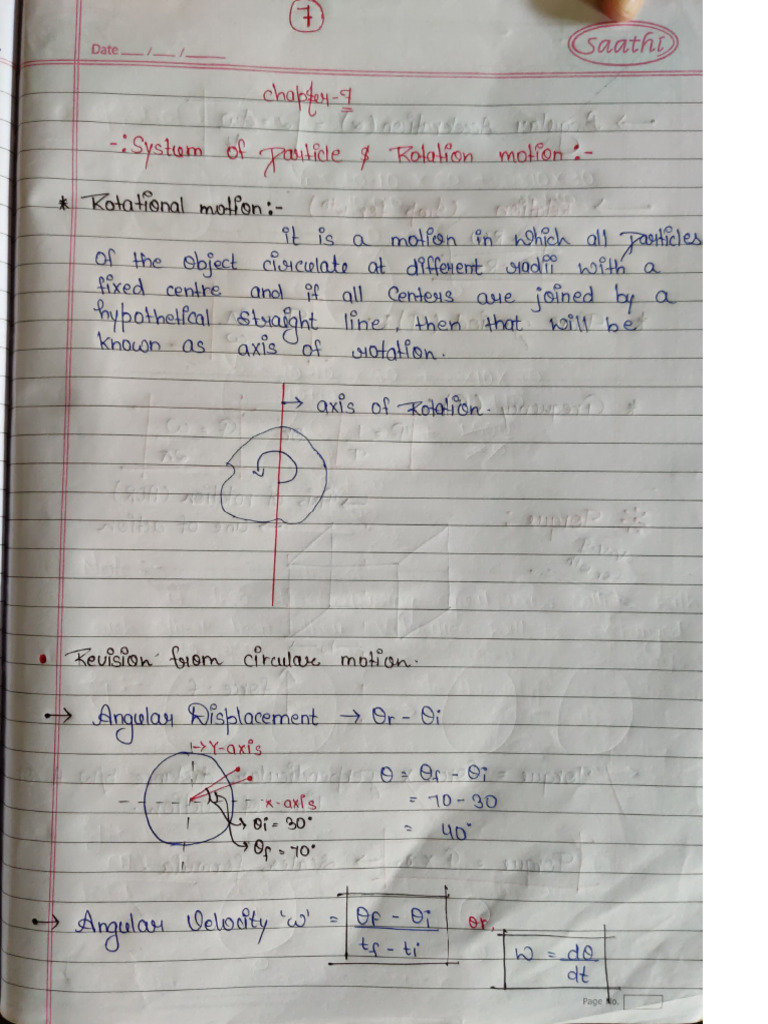 7
saathi
Date __/__/____
chapter-7
-:System of Particle & Rotation motion:-
* Rotational motion:-
it is a motion in which all particles
of the object circulate at different radii with a
fixed centre and if all centers are joined by a
hypothetical straight line, then that will be
known as axis of rotation.
→ axis of Rotation.
• Revision from circular motion.
→ Angular Displacement → θr - θi
→Y-axis
x-axis
θi = 30°
θf = 70°
θ = θf - θi
= 70 - 30
= 40°
→ Angular Velocity 'ω' = θf - θi / tf - ti or, W = dθ/dt
Page No.